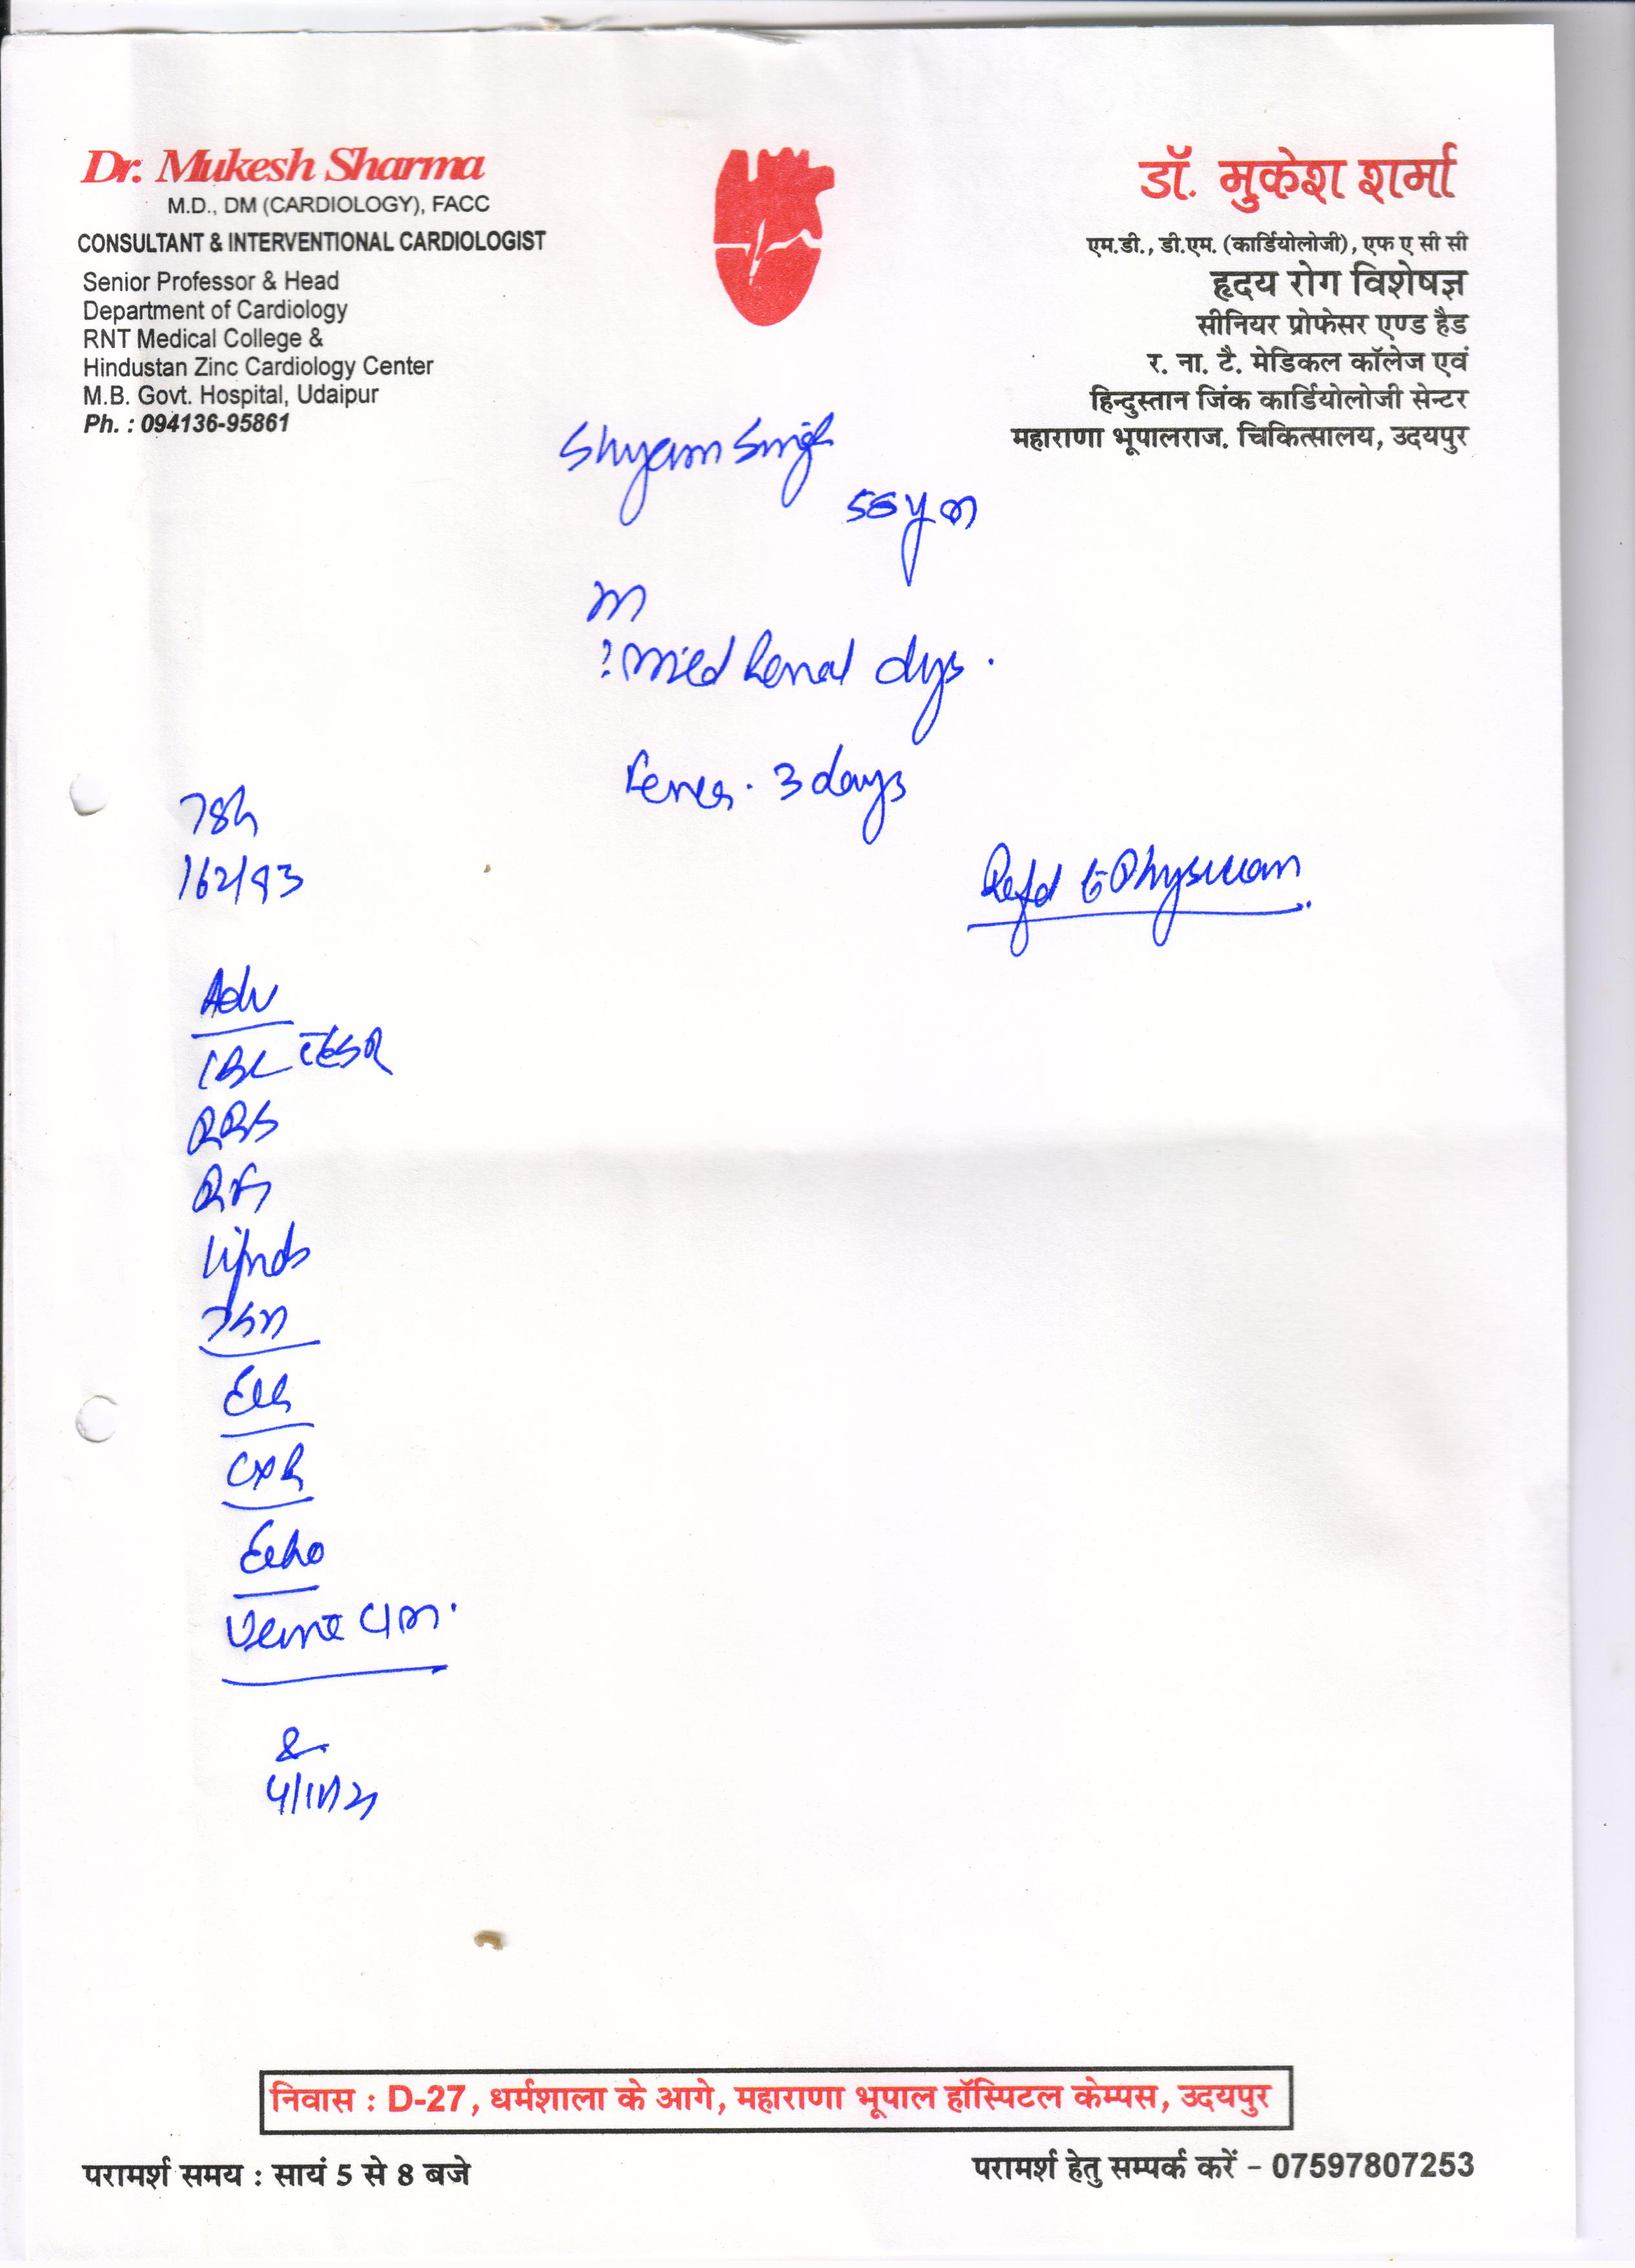 Dr. Mukesh Sharma
M.D., DM (CARDIOLOGY), FACC
CONSULTANT & INTERVENTIONAL CARDIOLOGIST
Senior Professor & Head
Department of Cardiology
RNT Medical College &
Hindustan Zinc Cardiology Center
M.B. Govt. Hospital, Udaipur
Ph. : 094136-95861
डॉ. मुकेश शर्मा
एम.डी., डी.एम. (कार्डियोलोजी), एफ ए सी सी
हृदय रोग विशेषज्ञ
सीनियर प्रोफेसर एण्ड हैड
र. ना. टै. मेडिकल कॉलेज एवं
हिन्दुस्तान जिंक कार्डियोलोजी सेन्टर
महाराणा भूपालराज. चिकित्सालय, उदयपुर
Shyam Singh
? Mild Renal dys.
Fever. 3 days
Refd to Physician
Adv
CBC ESR
RBS
RFT
Lipids
TSH
ECG
CXR
Echo
Urine C/M.
निवास : D-27, धर्मशाला के आगे, महाराणा भूपाल हॉस्पिटल केम्पस, उदयपुर
परामर्श समय : सायं 5 से 8 बजे
परामर्श हेतु सम्पर्क करें – 07597807253